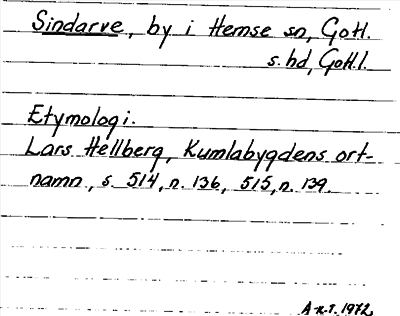 Sindarve, by i Hemse sn, Gotl.
s. hd, Gotl.l.
Etymologi.
Lars Hellberg, Kumlabygdens ort-
namn, s. 514, n. 136, 515, n. 139.
1972